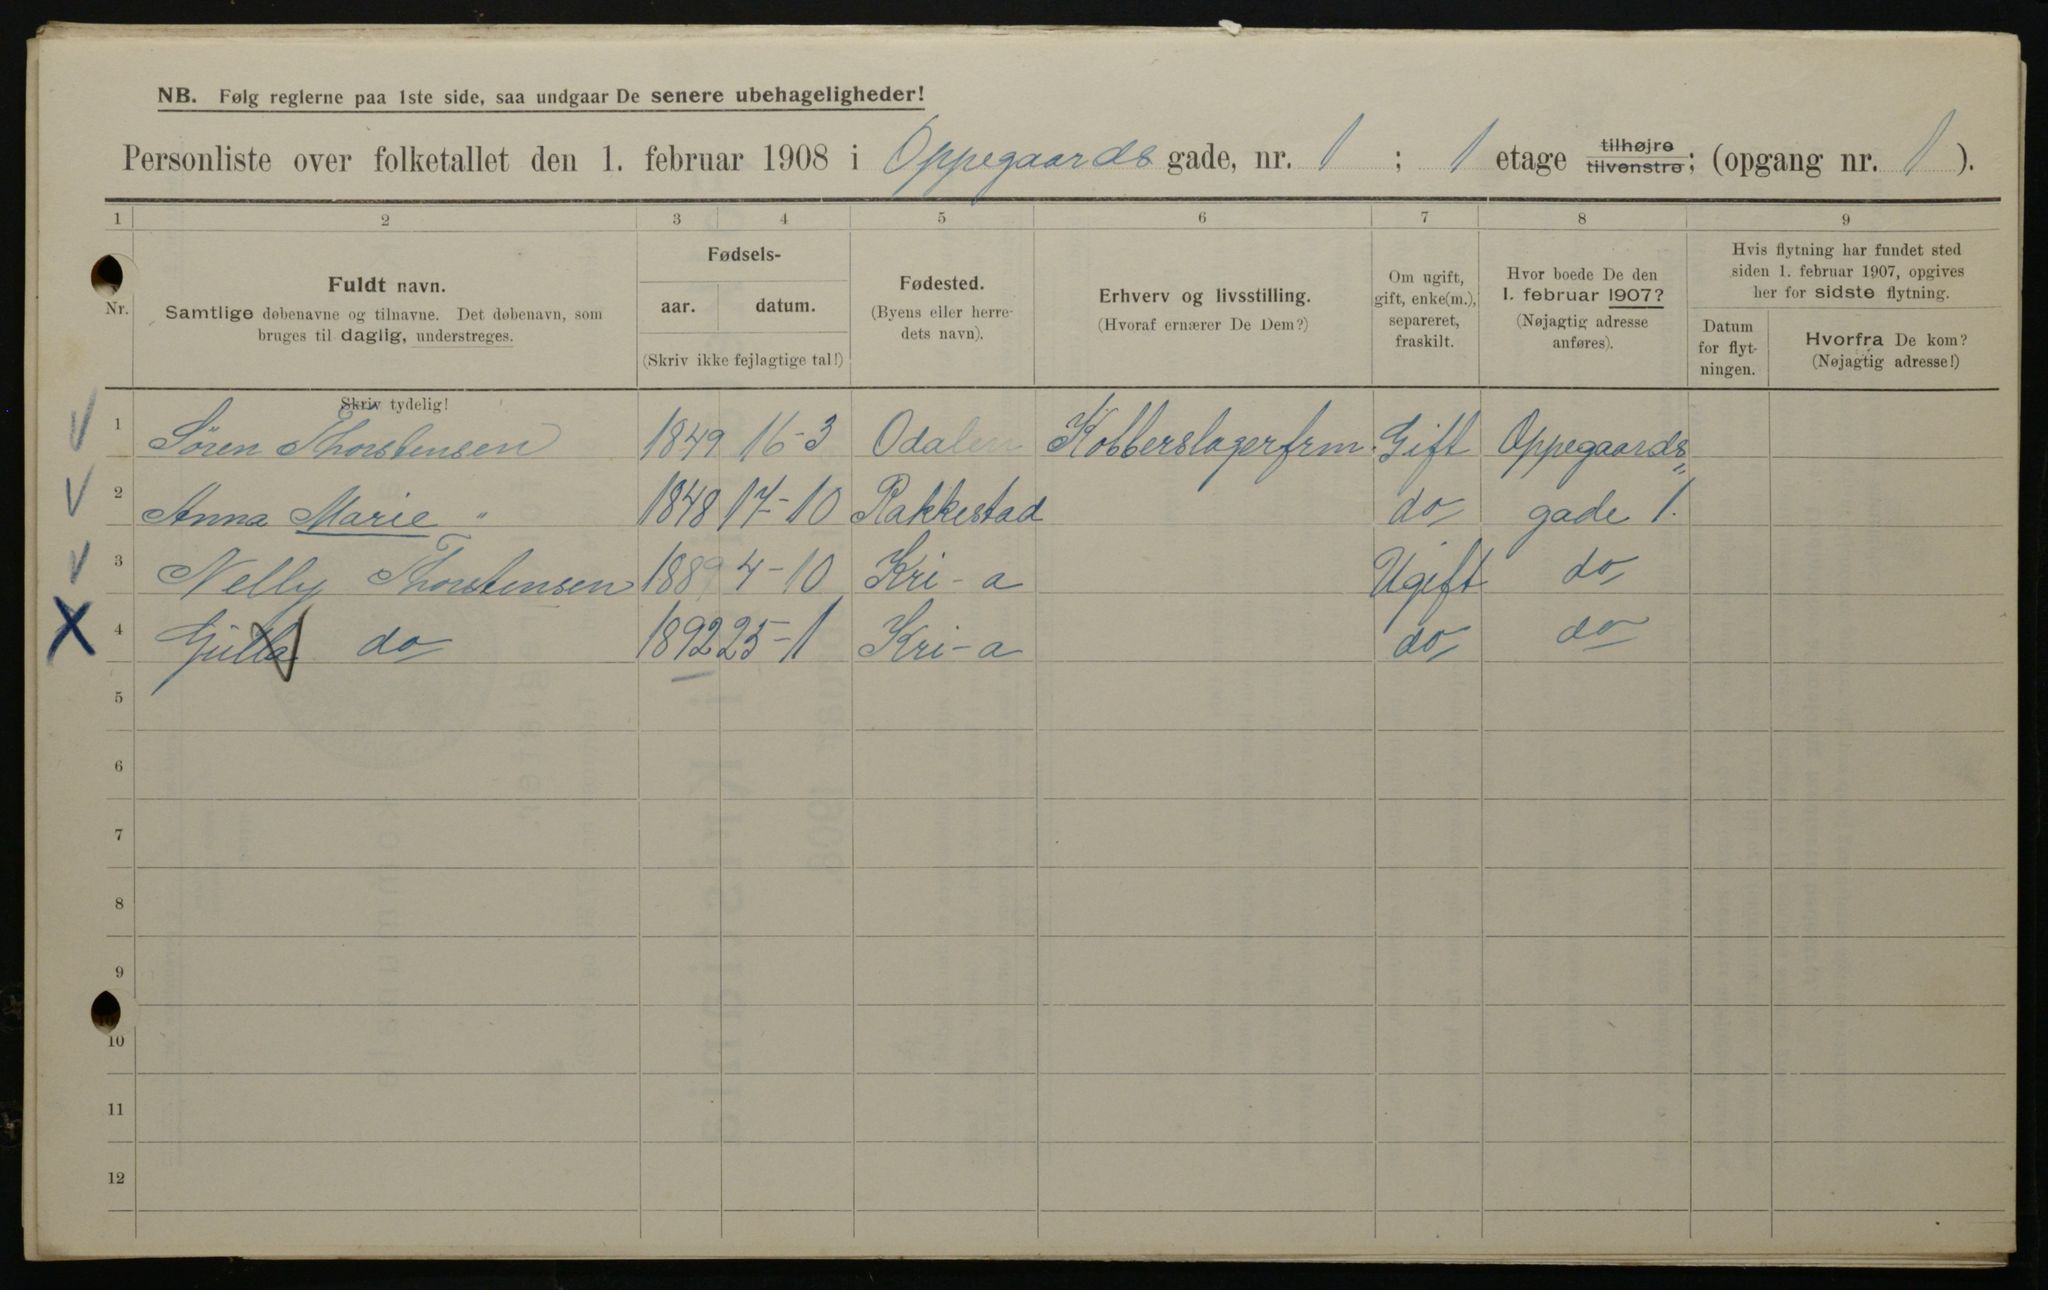 NB. Følg reglerne paa 1ste side, saa undgaar De senere ubehageligheder!
Personliste over folketallet den 1. februar 1908 i Oppegaards gade, nr. 1 ; 1 etage tilhøjre tilvenstre; (opgang nr. 1 ).
1 2 3 4 5 6 7 8 9
Nr.
Fuldt navn.
Samtlige døbenavne og tilnavne. Det døbenavn, som
bruges til daglig, understreges.
Skriv tydelig!
Fødsels-
aar. datum.
(Skriv ikke fejlagtige tal!)
Fødested.
(Byens eller herre-
dets navn).
Erhverv og livsstilling.
(Hvoraf ernærer De Dem?)
Om ugift,
gift, enke(m.),
separeret,
fraskilt.
Hvor boede De den
1. februar 1907?
(Nøjagtig adresse
anføres).
Hvis flytning har fundet sted
siden 1. februar 1907, opgives
her for sidste flytning.
Datum
for flyt-
ningen.
Hvorfra De kom?
(Nøjagtig adresse!)
1 Søren Thorstensen 1849 16-3 Odalen Kobberslagerfrm. Gift Oppegaards„
2 Anna Marie " 1848 17-10 Rakkestad do gade 1.
3 Nelly Thorstensen 1889 4-10 Kri-a Ugift do
4 do 1892 25-1 Kri-a do do
5
6
7
8
9
10
11
12